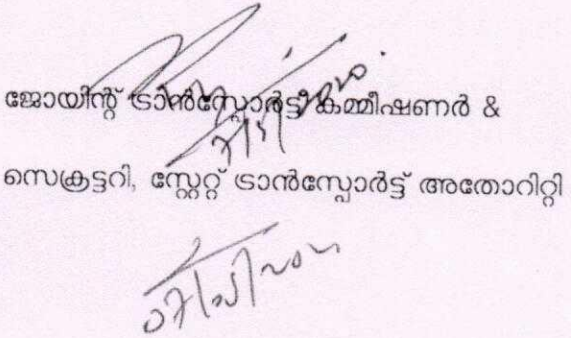 ജോയിന്റ് ട്രാൻസ്പോർട്ട് കമ്മീഷണർ &
സെക്രട്ടറി, സ്റ്റേറ്റ് ട്രാൻസ്പോർട്ട് അതോറിറ്റി